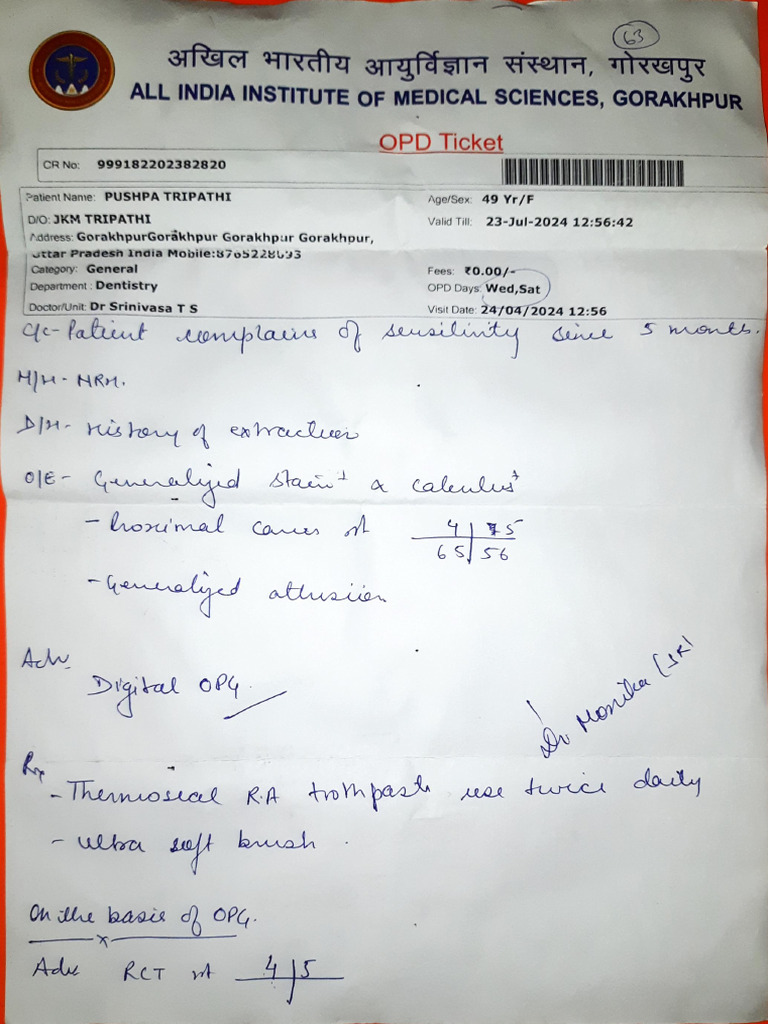 63
अखिल भारतीय आयुर्विज्ञान संस्थान, गोरखपुर
ALL INDIA INSTITUTE OF MEDICAL SCIENCES, GORAKHPUR
OPD Ticket
CR No: 999182202382820
Patient Name: PUSHPA TRIPATHI Age/Sex: 49 Yr/F
D/O: JKM TRIPATHI Valid Till: 23-Jul-2024 12:56:42
Address: GorakhpurGorakhpur Gorakhpur Gorakhpur,
Uttar Pradesh India Mobile:8765228693
Category: General Fees: ₹0.00/-
Department : Dentistry OPD Days: Wed,Sat
Doctor/Unit: Dr Srinivasa T S Visit Date: 24/04/2024 12:56
C/c- Patient complains of sensitivity since 5 months.
M/H- NRH.
D/H- History of extraction
O/E- Generalized stain+ & calculus+
- Proximal caries wrt 4 | 5
65 | 56
- Generalized attrition
Adv
Digital OPG.
Dr Monika (JR)
Rx
- Thermoseal R.A toothpaste use twice daily
- Ultra soft brush.
On the basis of OPG.
Adv RCT wrt 4 | 5